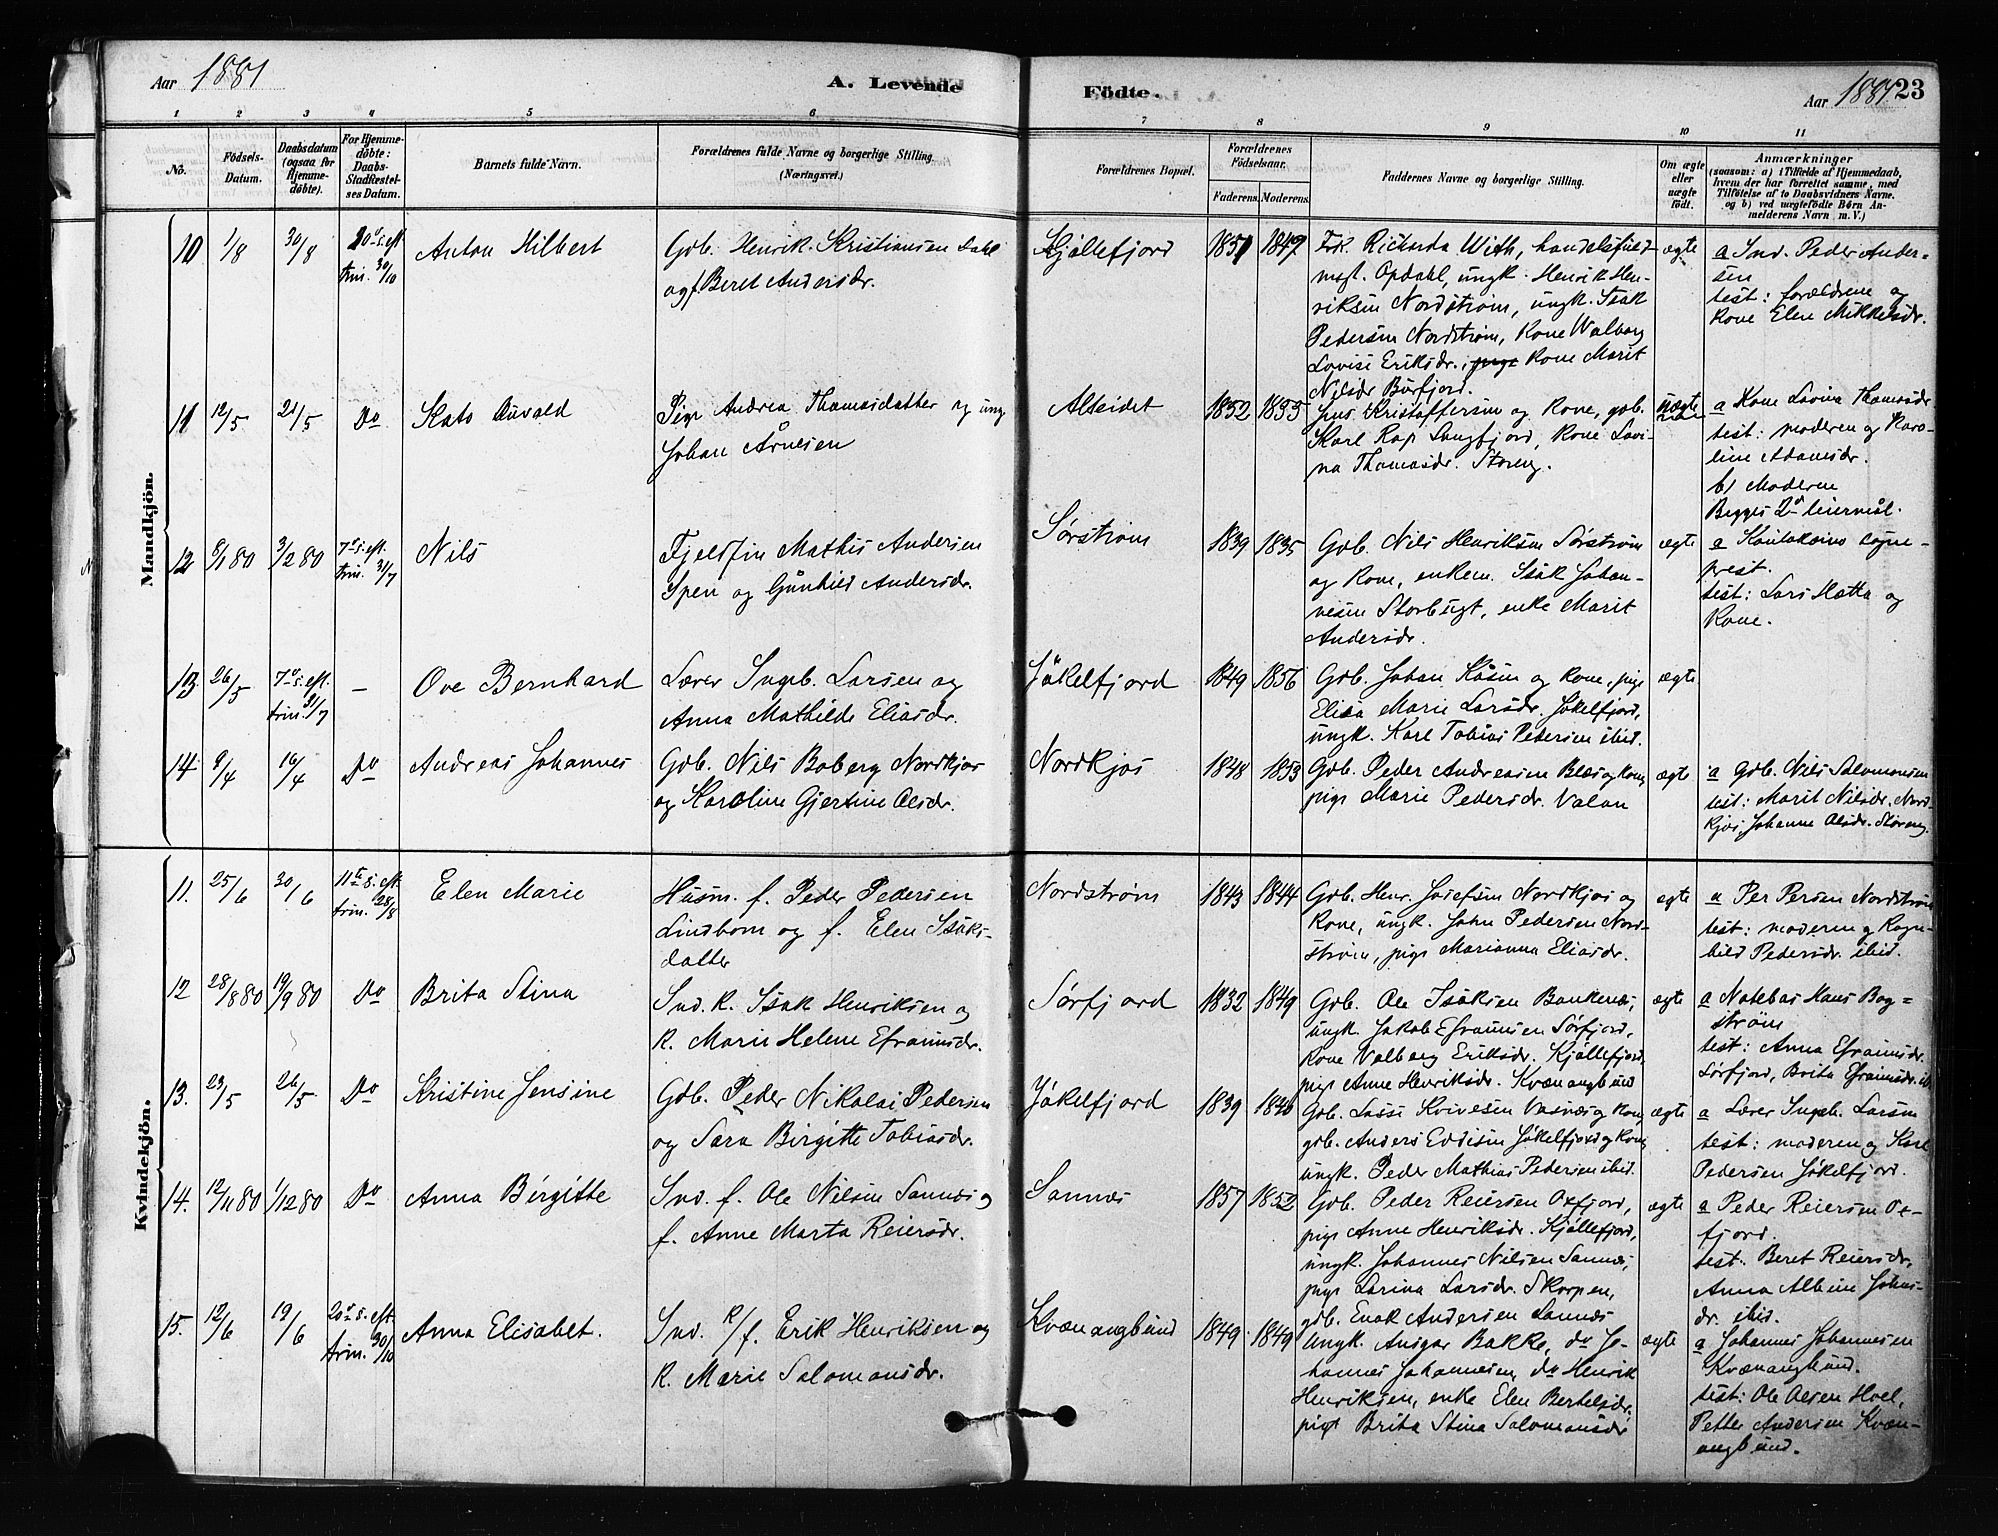 Aar 1881
A. Levende
Födte.
Aar 1881. 23
1 2 3 4 5 6 7 8 9 10 11
No.
Födsels-Datum.
Daabsdatum (ogsaa for Hjemme-döbte).
For Hjemme-döbte: Daabs-Stadfæstel-ses Datum.
Barnets fulde Navn.
Forældrenes fulde Navne og borgerlige Stilling (Næringsvei.)
Forældrenes Bopæl.
Forældrenes Födselsaar.
Faderens. Moderens.
Faddernes Navne og borgerlige Stilling.
Om ægte eller uægte födt.
Anmærkninger
(saasom: a) i Tilfælde af Hjemmedaab, hvem der har forrettet samme, med Tilföielse af to Daabsvidners Navne. og b) ved uægtefödte Börn An-melderens Navn m. V.)
Mandkjön.
10 1/8 30/8 20de s. eft. trin. 30/10
Anton Hilbert
Gdb. Henrik Kristiansen Dahl
og f. Beret Andersdr.
Kjøllefjord
1851 1849
Frk. Richarda With, handelsfuld-
megt. Opdahl, ungk. Henrik Hen-
riksen Nordstrøm, ungk. Isak
Pedersen Nordstrøm, Kone Walborg
Lovise Eriksdr., pige Kone Marit
Nilsdr Burfjord.
ægte
a Ind. Peder Ander-
sen
test: forældrene og
Kone Elen Mikkelsdr.
11 12/5 21/5 Do
Kato Osvald
Pige Andrea Thomasdatter og ung.
Johan Arnesen
Alteidet
1852 1855
Jens Kristoffersen og Kone, gdb.
Karl Rap Langfjord, Kone Lovi-
na Thomasdr. Storeng.
uægte
a Kone Lovina Thomasdr
test: moderen og Karo-
line Adamsdr.
b) Moderen
Begges 2det leiermål.
12 8/1 80 3/2 80 7de s. eft. trin. 31/7
Nils
Fjeldfin Mathis Andersen
Spen og Gunhild Andersdr.
Sørstrøm
1839 1835
Gdb. Nils Henriksen Sørstrøm
og Kone, enkem. Isak Johan-
nesen Storbugt, enke Marit
Andersdr.
ægte
a Kautokeino sogne-
prest.
test: Lars Hætta og
Kone.
13 26/5 7de s. eft. trin. 31/7 –
Ove Bernhard
Lærer Ingeb. Larsen og
Anna Mathilde Eliasdr.
Jøkelfjord
1849 1856
Gdb. Johan Kåsen og Kone, pige
Elisa Marie Larsdr. Jøkelfjord,
ungk. Karl Tobias Pedersen ibid.
ægte
14 9/4 16/4 Do
Andreas Johannes
Gdb. Nils Boberg Nordkjos
og Karoline Gjertine Olsdr.
Nordkjos
1848 1853
Gdb. Peder Andreasen Blæs og Kone,
pige Marie Pedersdr. Valan
ægte
a Gdb. Nils Salomonsen
test: Marit Nilsdr. Nord-
kjos, Johanne Olsdr. Storeng.
Kvindekjön.
11. 25/6 30/6 11te s. eft. trin. 28/8
Elen Marie
Husm. f. Peder Pedersen
Lindbom og f. Elen Isaks-
datter
Nordstrøm
1843 1844
Gdb. Henr. Josefsen Nordkjos og
Kone, ungk. John Pedersen Nord-
strøm, pige Marianna Eliasdr.
ægte
a Per Persen Nordstrøm
test: moderen og Ragn-
hild Pedersdr. ibid.
12 28/8 80 19/9 80 Do
Brita Stina
Ind. K. Isak Henriksen og
K. Marie Helene Efraimsdr.
Sørfjord
1832 1849
Gdb. Ole Isaksen Bankenæs,
ungk. Jakob Efraimsen Sørfjord,
Kone Valborg Eriksdr. Kjøllefjord,
pige Anne Henriksdr. Kvænangbund
ægte
a Notebas Hans Bog-
strøm
test: Anna Efraimsdr.
Sørfjord, Brita Efraimsdr. ib
13. 23/5 26/5 Do
Kristine Jensine
Gdb. Peder Nikolai Pedersen
og Sara Birgitte Tobiasdr.
Jøkelfjord
1839 1846
Gdb. Lasse Kvivesen Vasnæs og Kone,
gdb. Anders Eddisen Jøkelfjord og Kone,
ungk. Peder Mathias Pedersen ibid.
ægte
a Lærer Ingeb. Larsen
test: moderen og Karl
Pedersen Jøkelfjord.
14. 12/11 80 1/12 80 Do
Anna Birgitte
Ind. f. Ole Nilsen Sannæs og
f. Anne Marta Reiersdr.
Sannæs
1857 1852
Gdb. Peder Reiersen Oxfjord,
pige Anne Henriksdr. Kjøllefjord,
ungk. Johannes Nilsen Sannæs,
pige Larina Larsdr. Skorpen,
gdb. Enok Andersen Sannæs
ægte
a Peder Reiersen Ox-
fjord.
test: Beret Reiersdr,
Anna Albine Johns-
dr. ibid.
15. 12/6 19/6 20de s. eft. trin. 30/10
Anna Elisabet.
Ind. K/f. Erik Henriksen og
K. Marie Salomonsdr.
Kvænangbund
1849. 1849
Ungk. Ansgar Bakke, do Jo-
hannes Johannesen, do Henrik
Henriksen, enke Elen Bertelsdr,
pige Brita Stina Salomonsdr
ægte
a Johannes Johannesen
Kvænangbund.
test: Ole Olsen Hoel,
Petter Andersen Kvæn-
angbund.